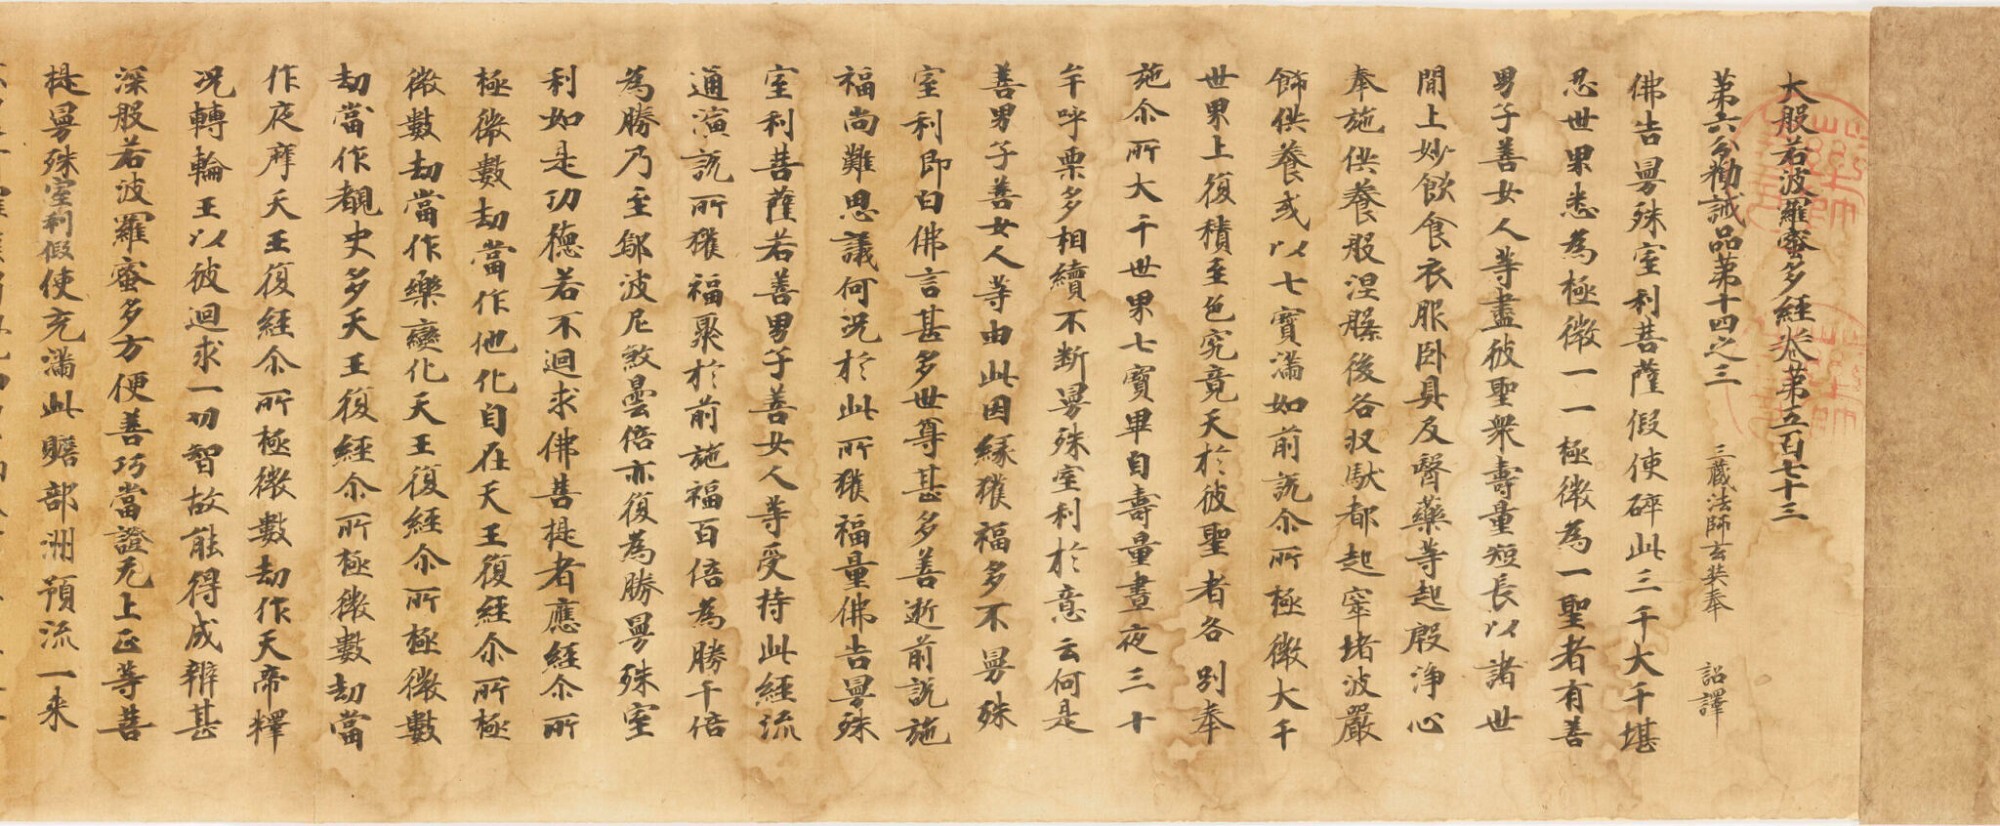 大般若波羅蜜多經卷第五百七十三
第六分勸誡品第十四之三 三藏法師玄奘奉 詔譯
佛告曼殊室利菩薩假使碎此三千大千堪
忍世界悉為極微一一極微為一聖者有善
男子善女人等盡彼聖衆壽量短長以諸世
間上妙飲食衣服卧具及醫藥等起殷淨心
奉施供養般涅槃後各収馱都起窣堵波嚴
飾供養或以七寶滿如前說尒所極微大千
世界上復積至色究竟天於彼聖者各別奉
施尒所大千世界七寶畢自壽量晝夜三十
牟呼栗多相續不断曼殊室利於意云何是
善男子善女人等由此因緣獲福多不曼殊
室利即白佛言甚多世尊甚多善逝前說施
福尚難思議何況於此所獲福量佛告曼殊
室利菩薩若善男子善女人等受持此經流
通演說所獲福聚於前施福百倍為勝千倍
為勝乃至鄔波尼煞曇倍亦復為勝曼殊室
利如是功德若不迴求佛菩提者應經尒所
極微數劫當作他化自在天王復經尒所極
微數劫當作樂變化天王復經尒所極微數
劫當作覩史多天王復經尒所極微數劫當
作夜摩天王復經尒所極微數劫作天帝釋
况轉輪王以彼迴求一切智故能得成辨甚
深般若波羅蜜多方便善巧當證无上正等菩
提曼殊室利假使充滿此贍部洲預流一来